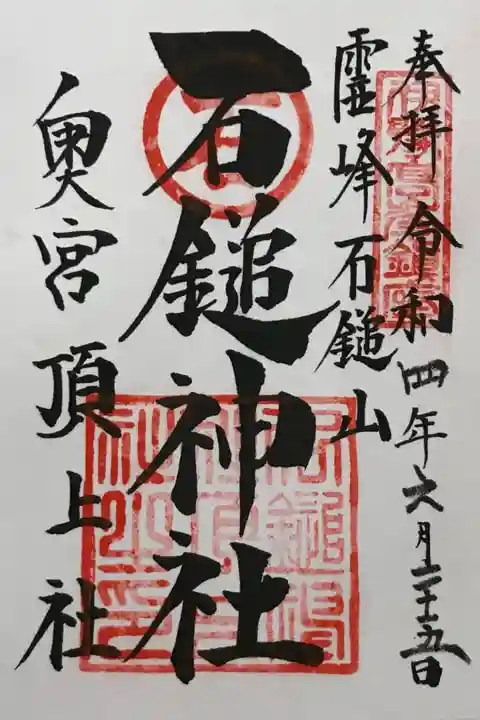 奉拝 令和四年六月二十五日
霊峰石鎚山
石鎚神社
奥宮頂上社